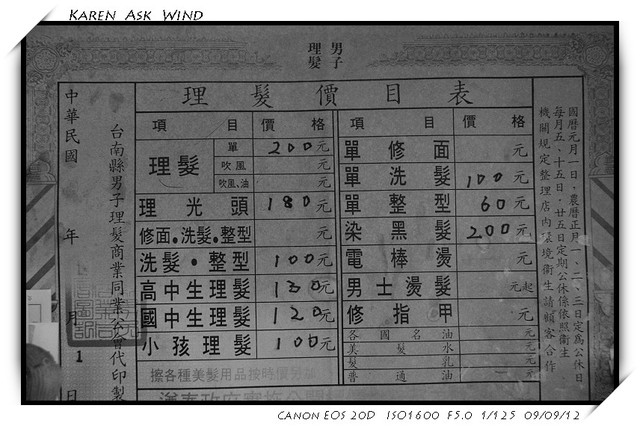 KAREN ASK WIND
男子
理髮
理髮價目表
項目 價格
理髮 單 200元
吹風 元
吹風、油 元
理光頭 180元
修面.洗髮.整型 元
洗髮.整型 100元
高中生理髮 130元
國中生理髮 120元
小孩理髮 100元
項目 價格
單修面 元
單洗髮 100元
單整型 60元
染黑髮 200元
電棒燙 元
男士燙髮 元起
修指甲 元
各國名油 元
美髮水 元
髮乳 元
普通油 元
國曆元月一日,農曆正月一、二、三日定為公休日,
每月五、十五日,廿五日定期公休係依照衛生
機關規定整理店內環境衛生請顧客合作
中華民國 年 月 1 日
台南縣男子理髮商業同業公會代印製
擦各種美髮用品按時價
CANON EOS 20D ISO1600 F5.0 1/125 09/09/12